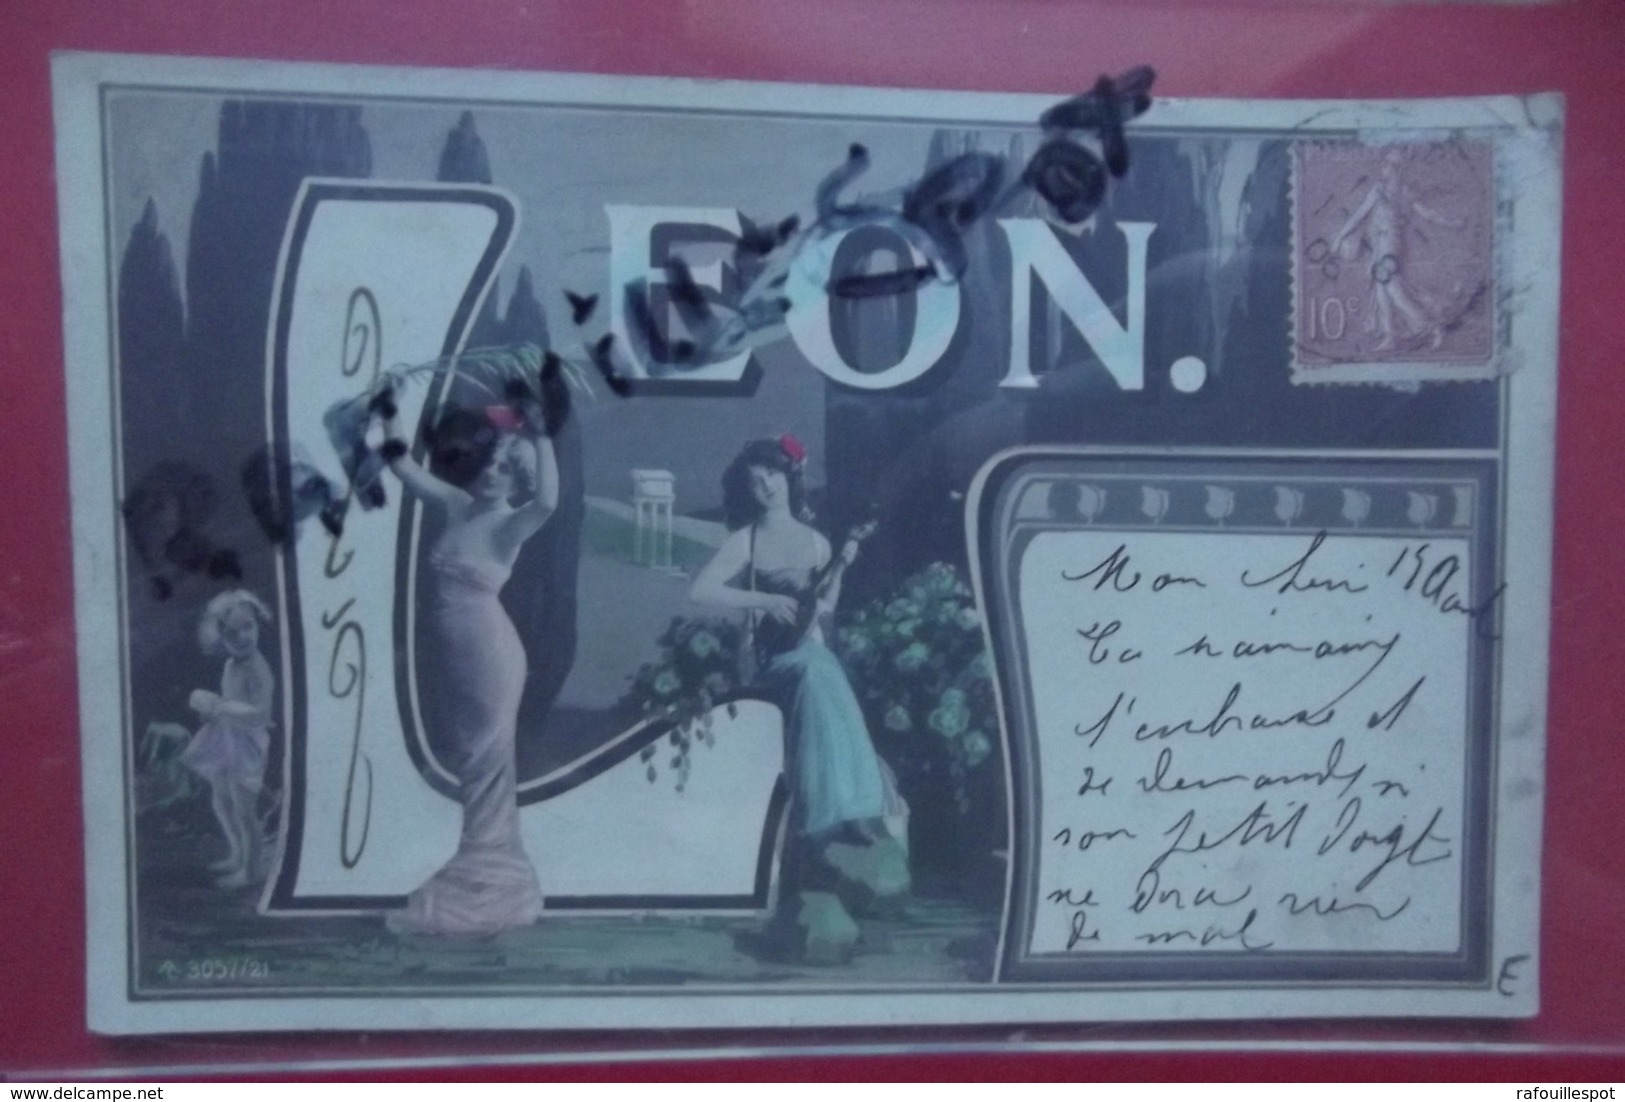 LEON.
10c
Mon cheri 15 Aout
Ta namaing
t'embrasse et
te demande si
son petit doigt
ne dira rien
de mal
3057/21
E
rafouillespot